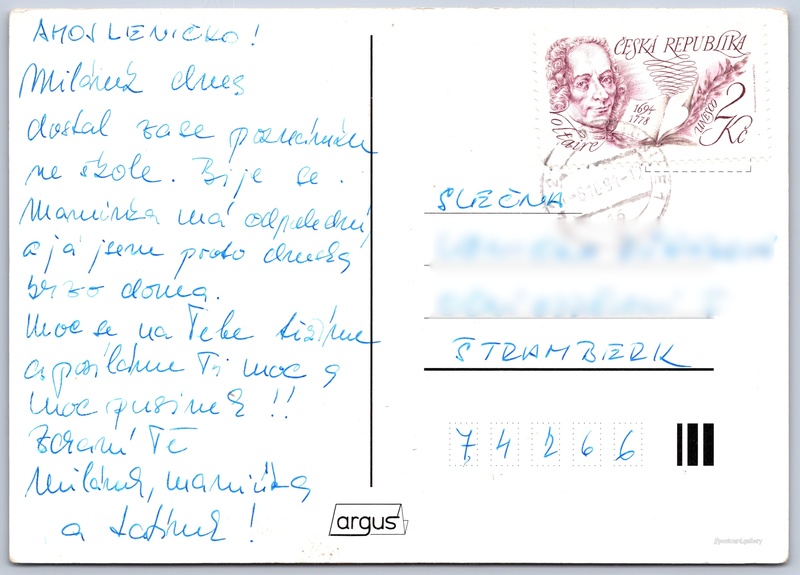 AHOJ LENIČKO!
Milánek dnes
dostal zase poznámku
ve škole. Bije se.
Maminka má odpolední
a já jsem proto dneska
brzo doma.
Moc se na Tebe těšíme
a posíláme Ti moc a
moc pusinek!!
Zdraví Tě
Milánek, maminka
a tatínek!
argus
ČESKÁ REPUBLIKA
1694
1778
Voltaire
2
Kč
SLEČNA
ŠTRAMBERK
74266